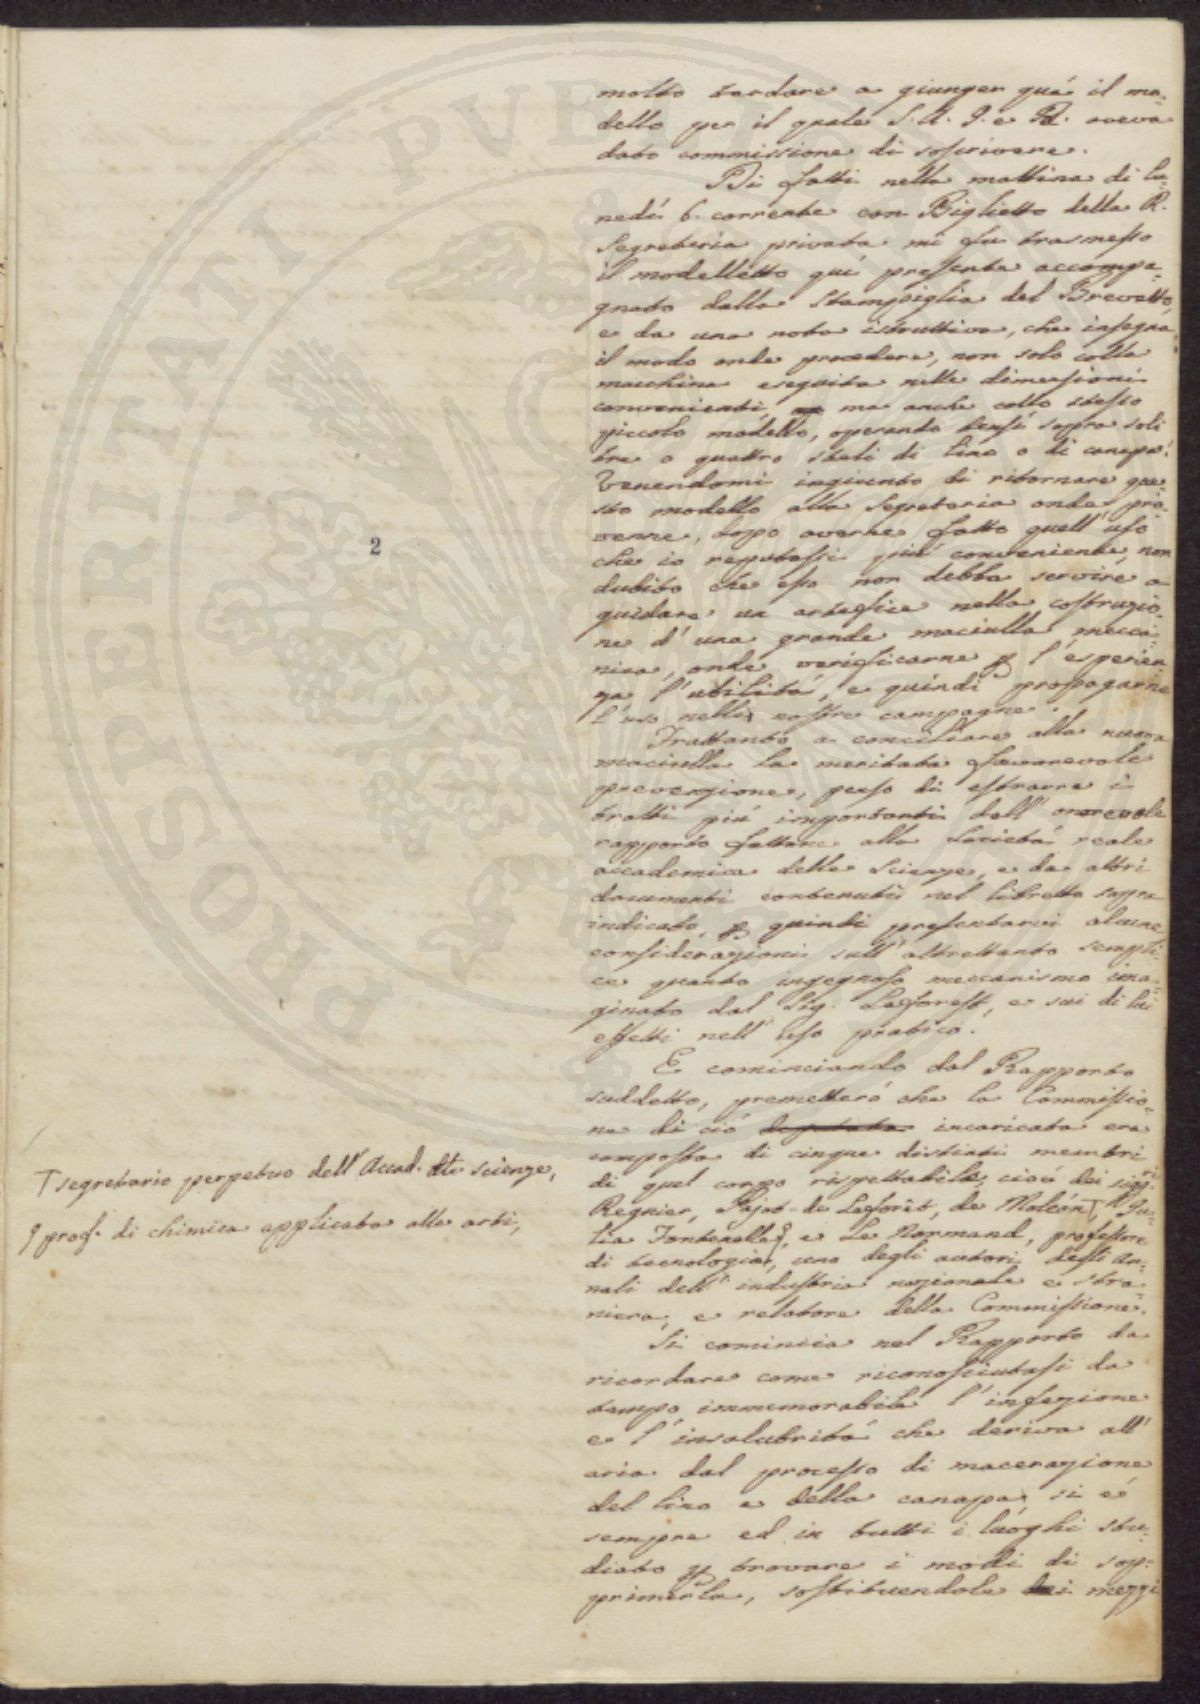 molto tardare a giunger quà il mo-
dello per il quale S. A. I. e R. aveva
dato commissione di soscrivere.
Di fatti nella mattina di lu-
nedì 6. corrente con Biglietto della R.
Segreteria privata mi fu trasmesso
il modelletto quì presente accompa-
gnato dalla Stampiglia del Brevetto,
e da una nota istruttiva, che insegna
il modo onde procedere, non solo colla
macchina eseguita nelle dimensioni
convenienti, ma anche collo stesso
piccolo modello, operando bensì sopra soli
tre o quattro steli di lino o di canapa.
Venendomi ingiunto di ritornare que-
sto modello alla Segreteria onde pro-
venne, dopo averne fatto quell'uso
che io reputassi più conveniente, non
dubito che esso non debba servire a
guidare un artefice nella costruzio-
ne d'una grande maciulla mecca-
nica, onde verificarne p l'esperien-
za l'utilità, e quindi propagarne
l'uso nelle nostre campagne.
Frattanto a conciliare alla nuova
maciulla la meritata favorevole
prevenzione, penso di estrarre i
tratti più importanti dell'onorevole
rapporto fattone alla Società reale
accademica delle Scienze, e da altri
documenti contenuti nel libretto sopra
indicato, p quindi presentarvi alcune
considerazioni sull'altrettanto sempli-
ce quanto ingegnoso meccanismo ima-
ginato dal Sig. Laforest, e sui di lui
effetti nell'uso pratico.
E cominciando dal Rapporto
suddetto, premetterò che la Commissio-
ne di ciò deputata incaricata era
composta di cinque distinti membri
di quel corpo rispettabile, cioè dei sigg.ri
Regnier, Pajot-de Laforêt, de Moléon T, Ju-
lia Fontenelle, e Le Normand, professore
di tecnologia, uno degli autori degli An-
nali dell'industria nazionale e stra-
niera, e relatore della Commissione.
Si comincia nel Rapporto da
ricordare come riconosciutasi da
tempo immemorabile l'infezione
e l'insalubrità che deriva all'
aria dal processo di macerazione
del lino e della canapa, si è
sempre ed in tutti i luoghi stu-
diato p trovare i modi di sop-
primerla, sostituendole dei mezzi
2
T segretario perpetuo dell'Accad. delle scienze,
prof. di chimica applicata alle arti,